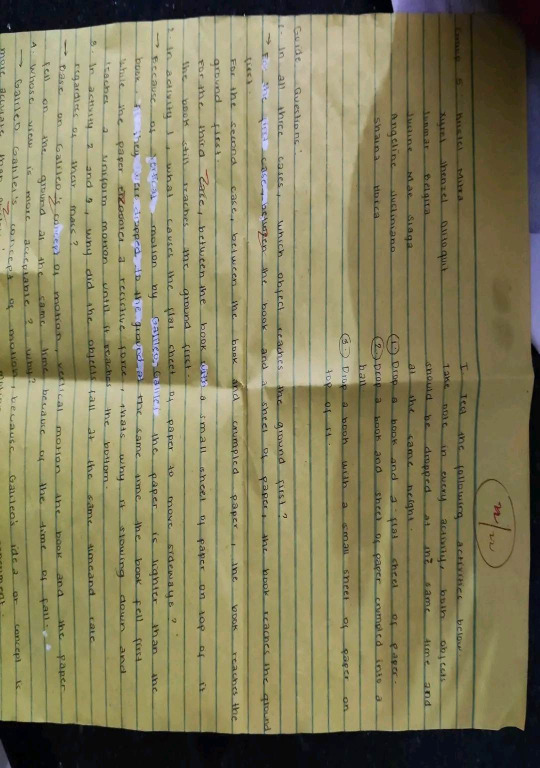 Group 5 Mabra
Dulogut
Jusmar Belgica
Justine Mae Siaga
Angeline Justiniano
Shaina Murca
I. Test the following activities below.
Take note in every activity, both objects
should be dropped at the same time and
at the same height.
① Drop a book and a flat sheet of paper.
② Drop a book and sheet of paper crumpled into a
ball.
③ Drop a book with a small sheet of paper on
top of it.
Guide Questions:
1. In all three cases, which object reaches the ground first?
→ For the first case, between the book and a sheet of paper, the book reaches the ground
first.
For the second case, between the book and crumpled paper, the book reaches the
ground first.
For the third case, between the book with a small sheet of paper on top of it
the book still reaches the ground first.
2. In activity 1, what causes the flat sheet of paper to move sideways?
→ Because of vertical motion by Galileo Galilei the paper is lighter than the
book if they were dropped to the ground at the same time the book fell first
while the paper encounter a resistive force, thats why it slowing down and
reaches a uniform motion until it reaches the bottom.
3. In activity 2 and 3, why did the object fall at the same time and rate
regardless of their mass?
→ Base on Galileo's concept of motion, vertical motion the book and the paper
fell on the ground at the same time because of the time of fall.
4. Whose view is more acceptable? Why?
→ Galileo Galilei's concept of motion, because Galileo's idea or concept is
more accurate than